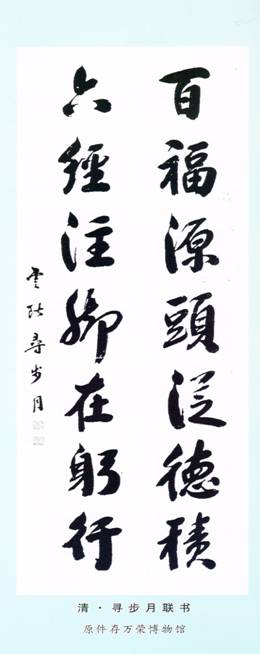 百福源頭從德積
六經注腳在躬行
雲 尋步月
清·寻步月联书
原件存万荣博物馆